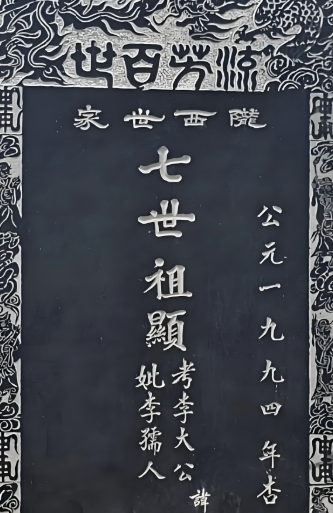 流芳百世
隴西世家
公元一九九四年杏
七世祖顯
考李大公
妣李孺人
諱